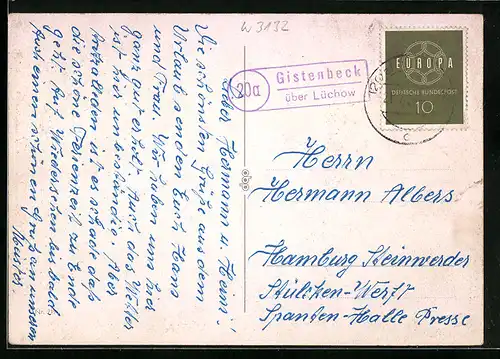 W 3132
20a
Gistenbeck
über Lüchow
EUROPA
DEUTSCHE BUNDESPOST
10
Lieber Hermann u. Heim!
Die schönsten Grüße aus dem
Urlaub senden Euch Hans
und Frau. Wir haben uns hier
ganz gut erholt. Auch das Wetter
ist hier sehr beständig. Aber
es ist schade daß
die schöne Ferienzeit zu Ende
geht. Auf Wiedersehen bis bald
Auch einen schönen Gruß an unseren
Herrn
Hermann Albers
Hamburg Steinwerder
Stülcken-Werft
Spanten-Halle Presse